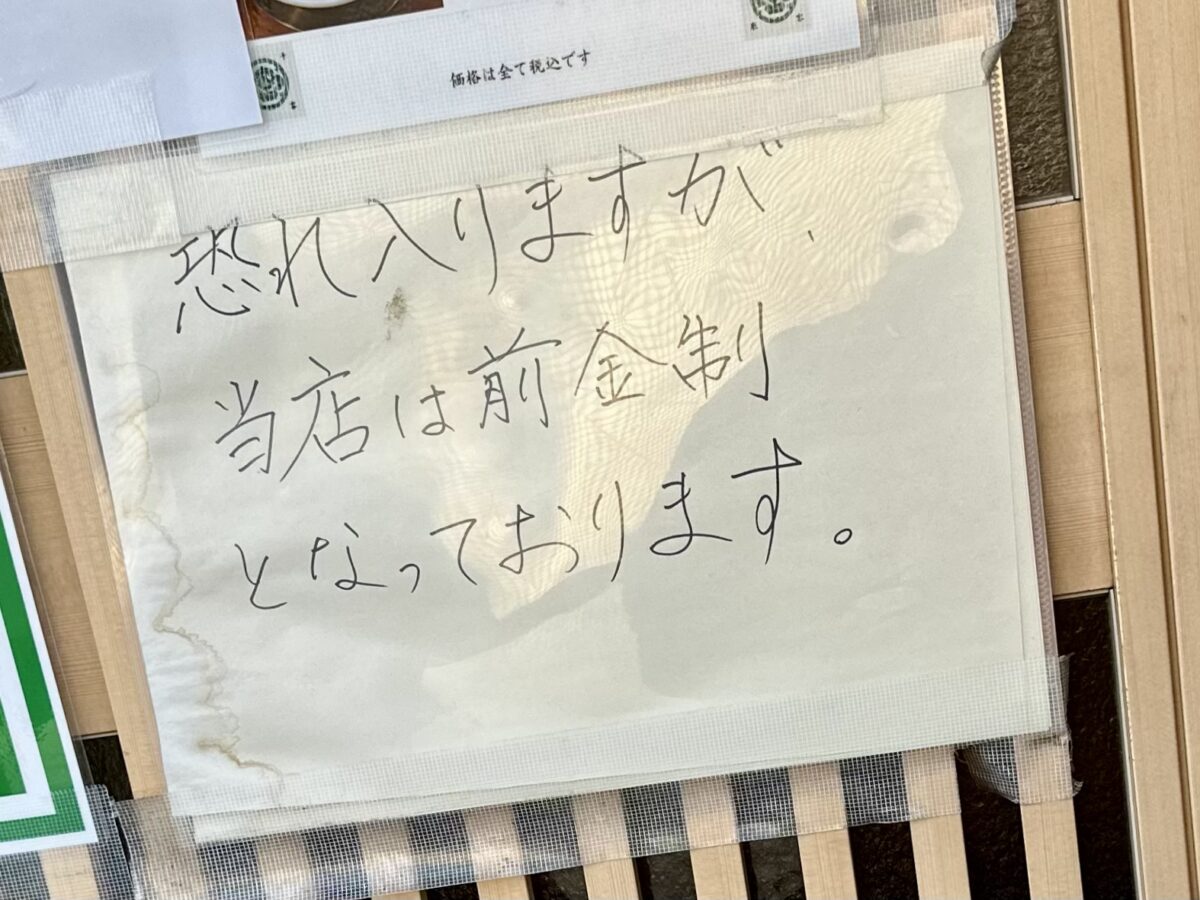 価格は全て税込です
恐れ入りますが、
当店は前金制
となっております。